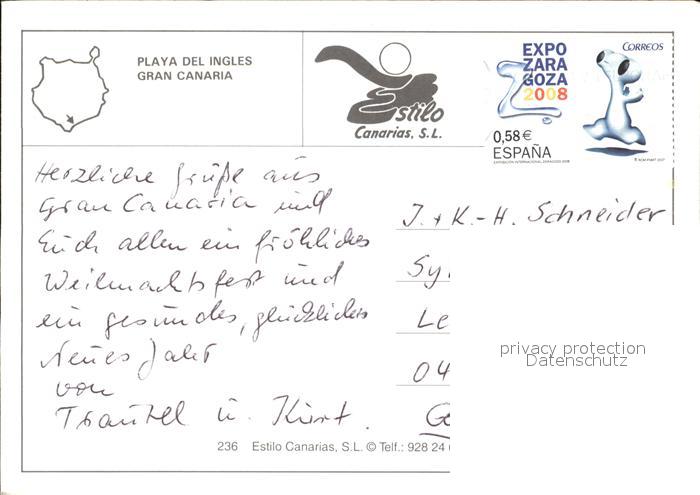 PLAYA DEL INGLES
GRAN CANARIA
Estilo
Canarias, S.L.
EXPO
ZARA
GOZA
2008
CORREOS
0,58 €
ESPAÑA
Herzliche Grüße aus
Gran Canaria und
Euch allen ein fröhliches
Weihnachtsfest und
ein gesundes, glückliches
Neues Jahr
von
Traudl u. Kurt.
J. + K.-H. Schneider
Sy
Le
04
G
privacy protection
Datenschutz
236 Estilo Canarias, S.L. © Telf.: 928 24